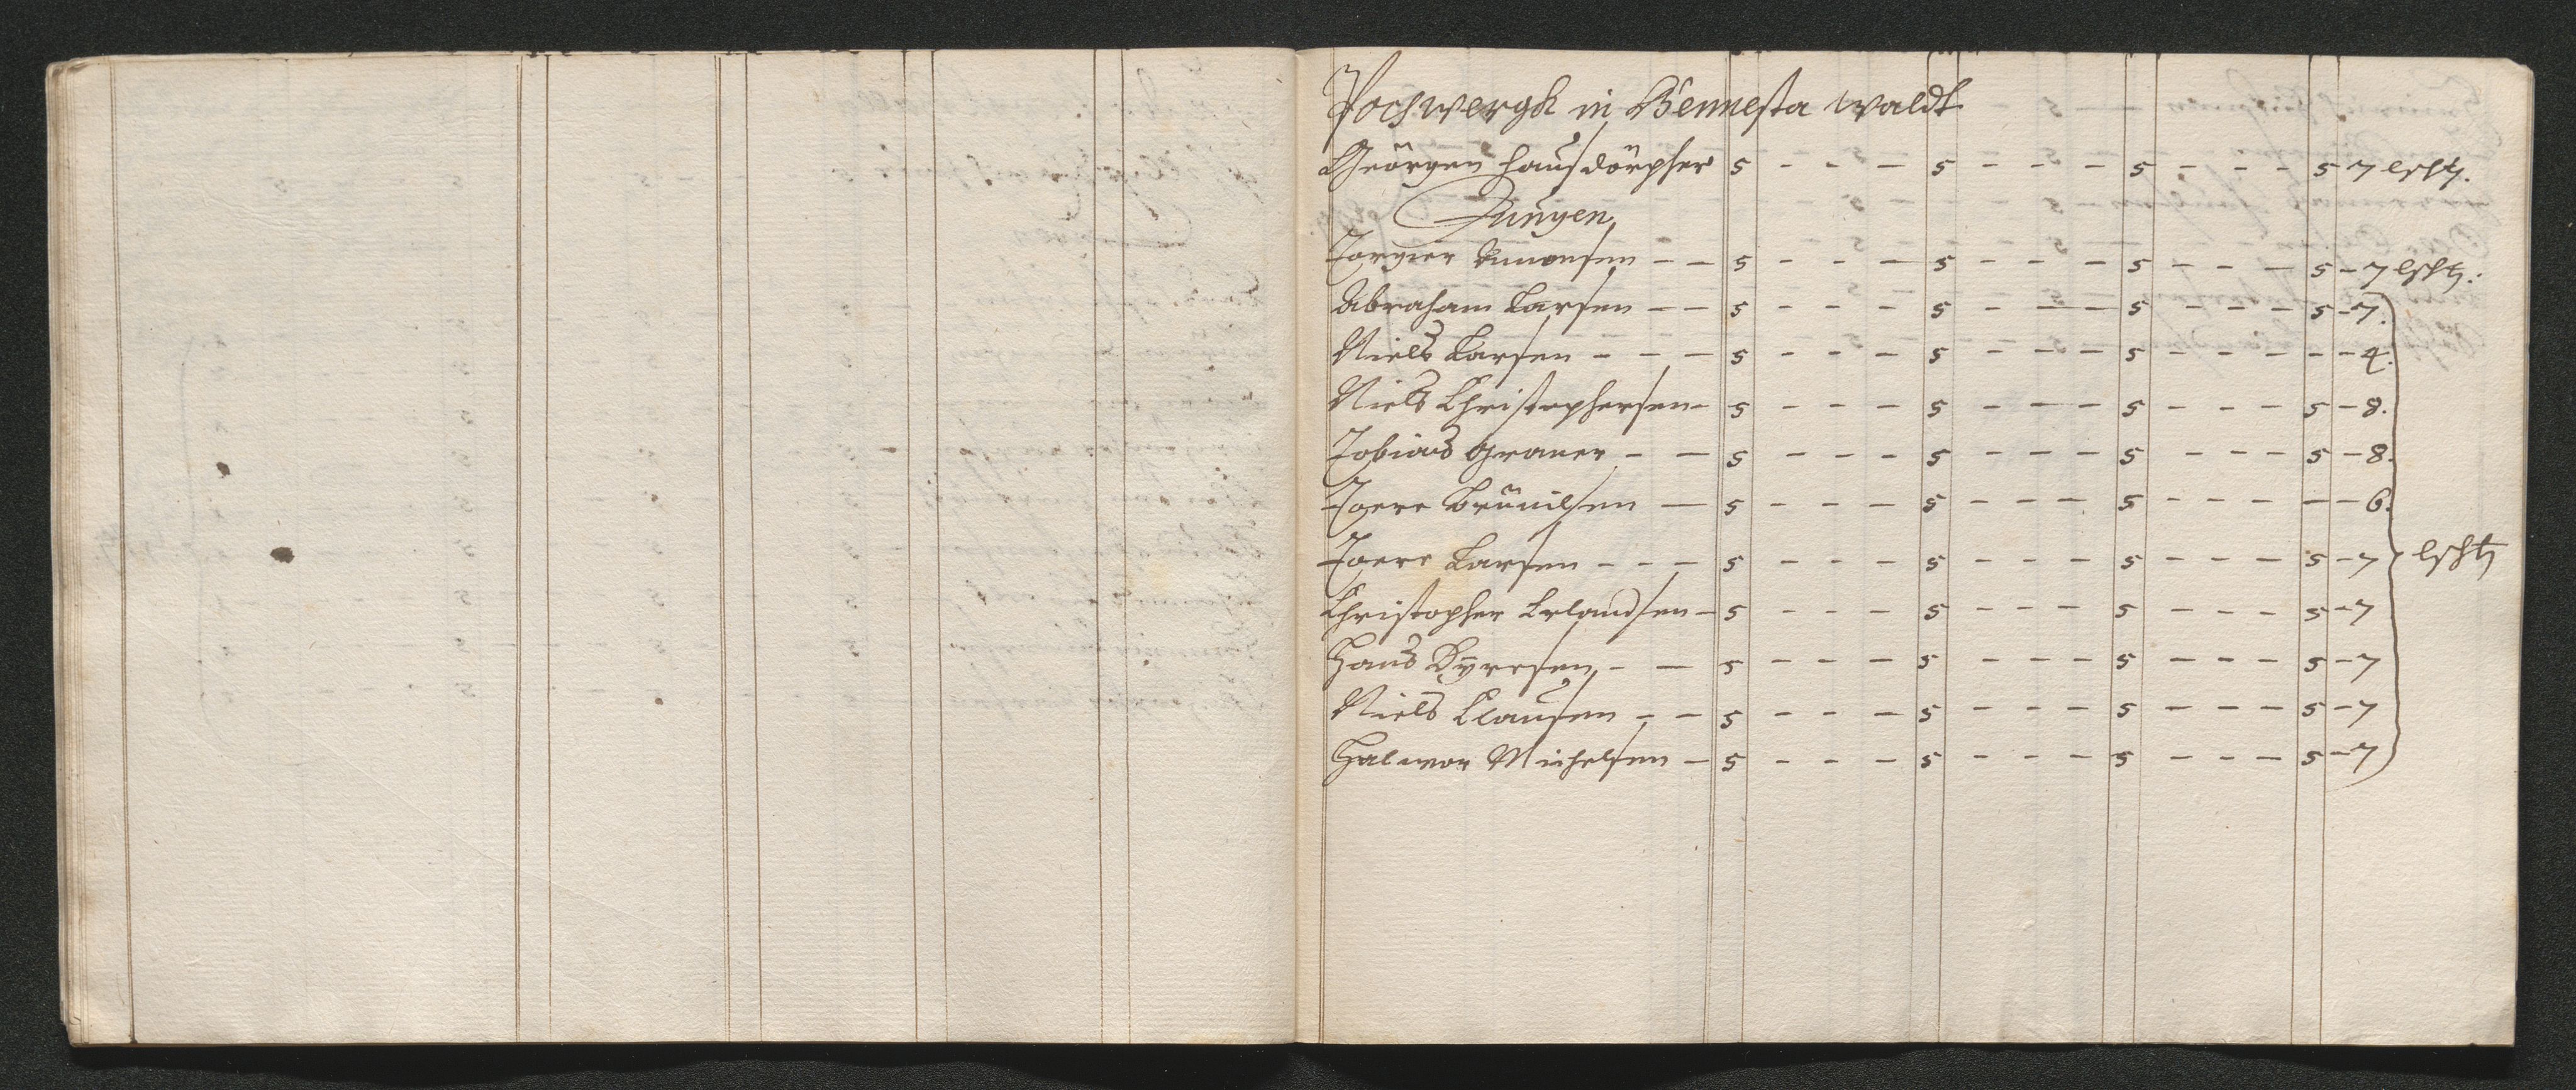 Pochwergk in Bennesta waldt
Geörgen Hausdörpher 5 - - - 5 - - - 5 - - - 5 - 7 lschtz.
Jungen
Torgier - - 5 - - - 5 - - - 5 - - - 5 - 7 lschtz:
Abraham Larsen - - 5 - - - 5 - - - 5 - - - 5 - 7.
Niels Larsen - - - 5 - - - 5 - - - 5 - - - - - 4.
Niels Christophersen - 5 - - - 5 - - - 5 - - - 5 - 8.
Tobias Graner - - 5 - - - 5 - - - 5 - - - 5 - 8.
Tore - 5 - - - 5 - - - 5 - - - - - 6.
Tore Larsen - - - 5 - - - 5 - - - 5 - - - 5 - 7 lschtz
Christopher Erlandsen - 5 - - - 5 - - - 5 - - - 5 - 7
Hans - - 5 - - - 5 - - - 5 - - - 5 - 7
Niels Clausen - - 5 - - - 5 - - - 5 - - - 5 - 7
Halwor Michelsen - 5 - - - 5 - - - 5 - - - 5 - 7